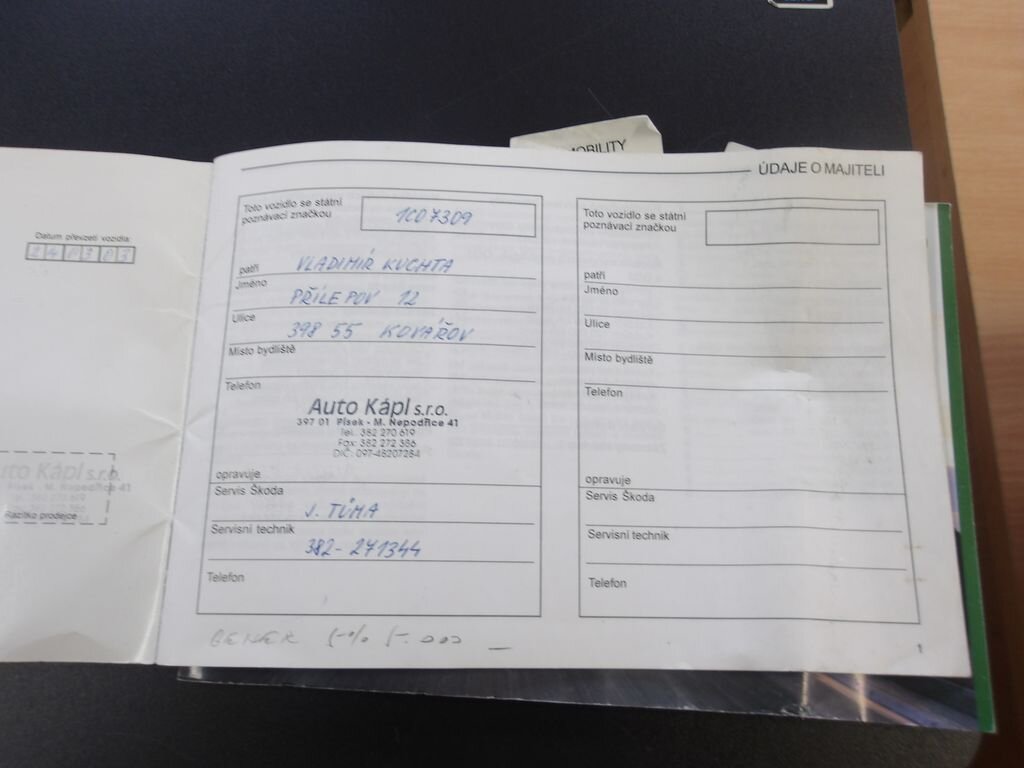 MOBILITY
Datum převzetí vozidla:
240303
Auto Kápl s.r.o.
Písek - M. Nepodřice 41
Razítko prodejce
ÚDAJE O MAJITELI
Toto vozidlo se státní
poznávací značkou
1C07309
patří
VLADIMÍR KUCHTA
Jméno
PŘÍLEPOV 12
Ulice
398 55 KOVÁŘOV
Místo bydliště
Telefon
Auto Kápl s.r.o.
397 01 Písek - M. Nepodřice 41
Tel. 382 270 619
Fax 382 272 386
DIČ: 097-48207284
opravuje
Servis Škoda
J. TŮMA
Servisní technik
382-271344
Telefon
Toto vozidlo se státní
poznávací značkou
patří
Jméno
Ulice
Místo bydliště
Telefon
opravuje
Servis Škoda
Servisní technik
Telefon
1